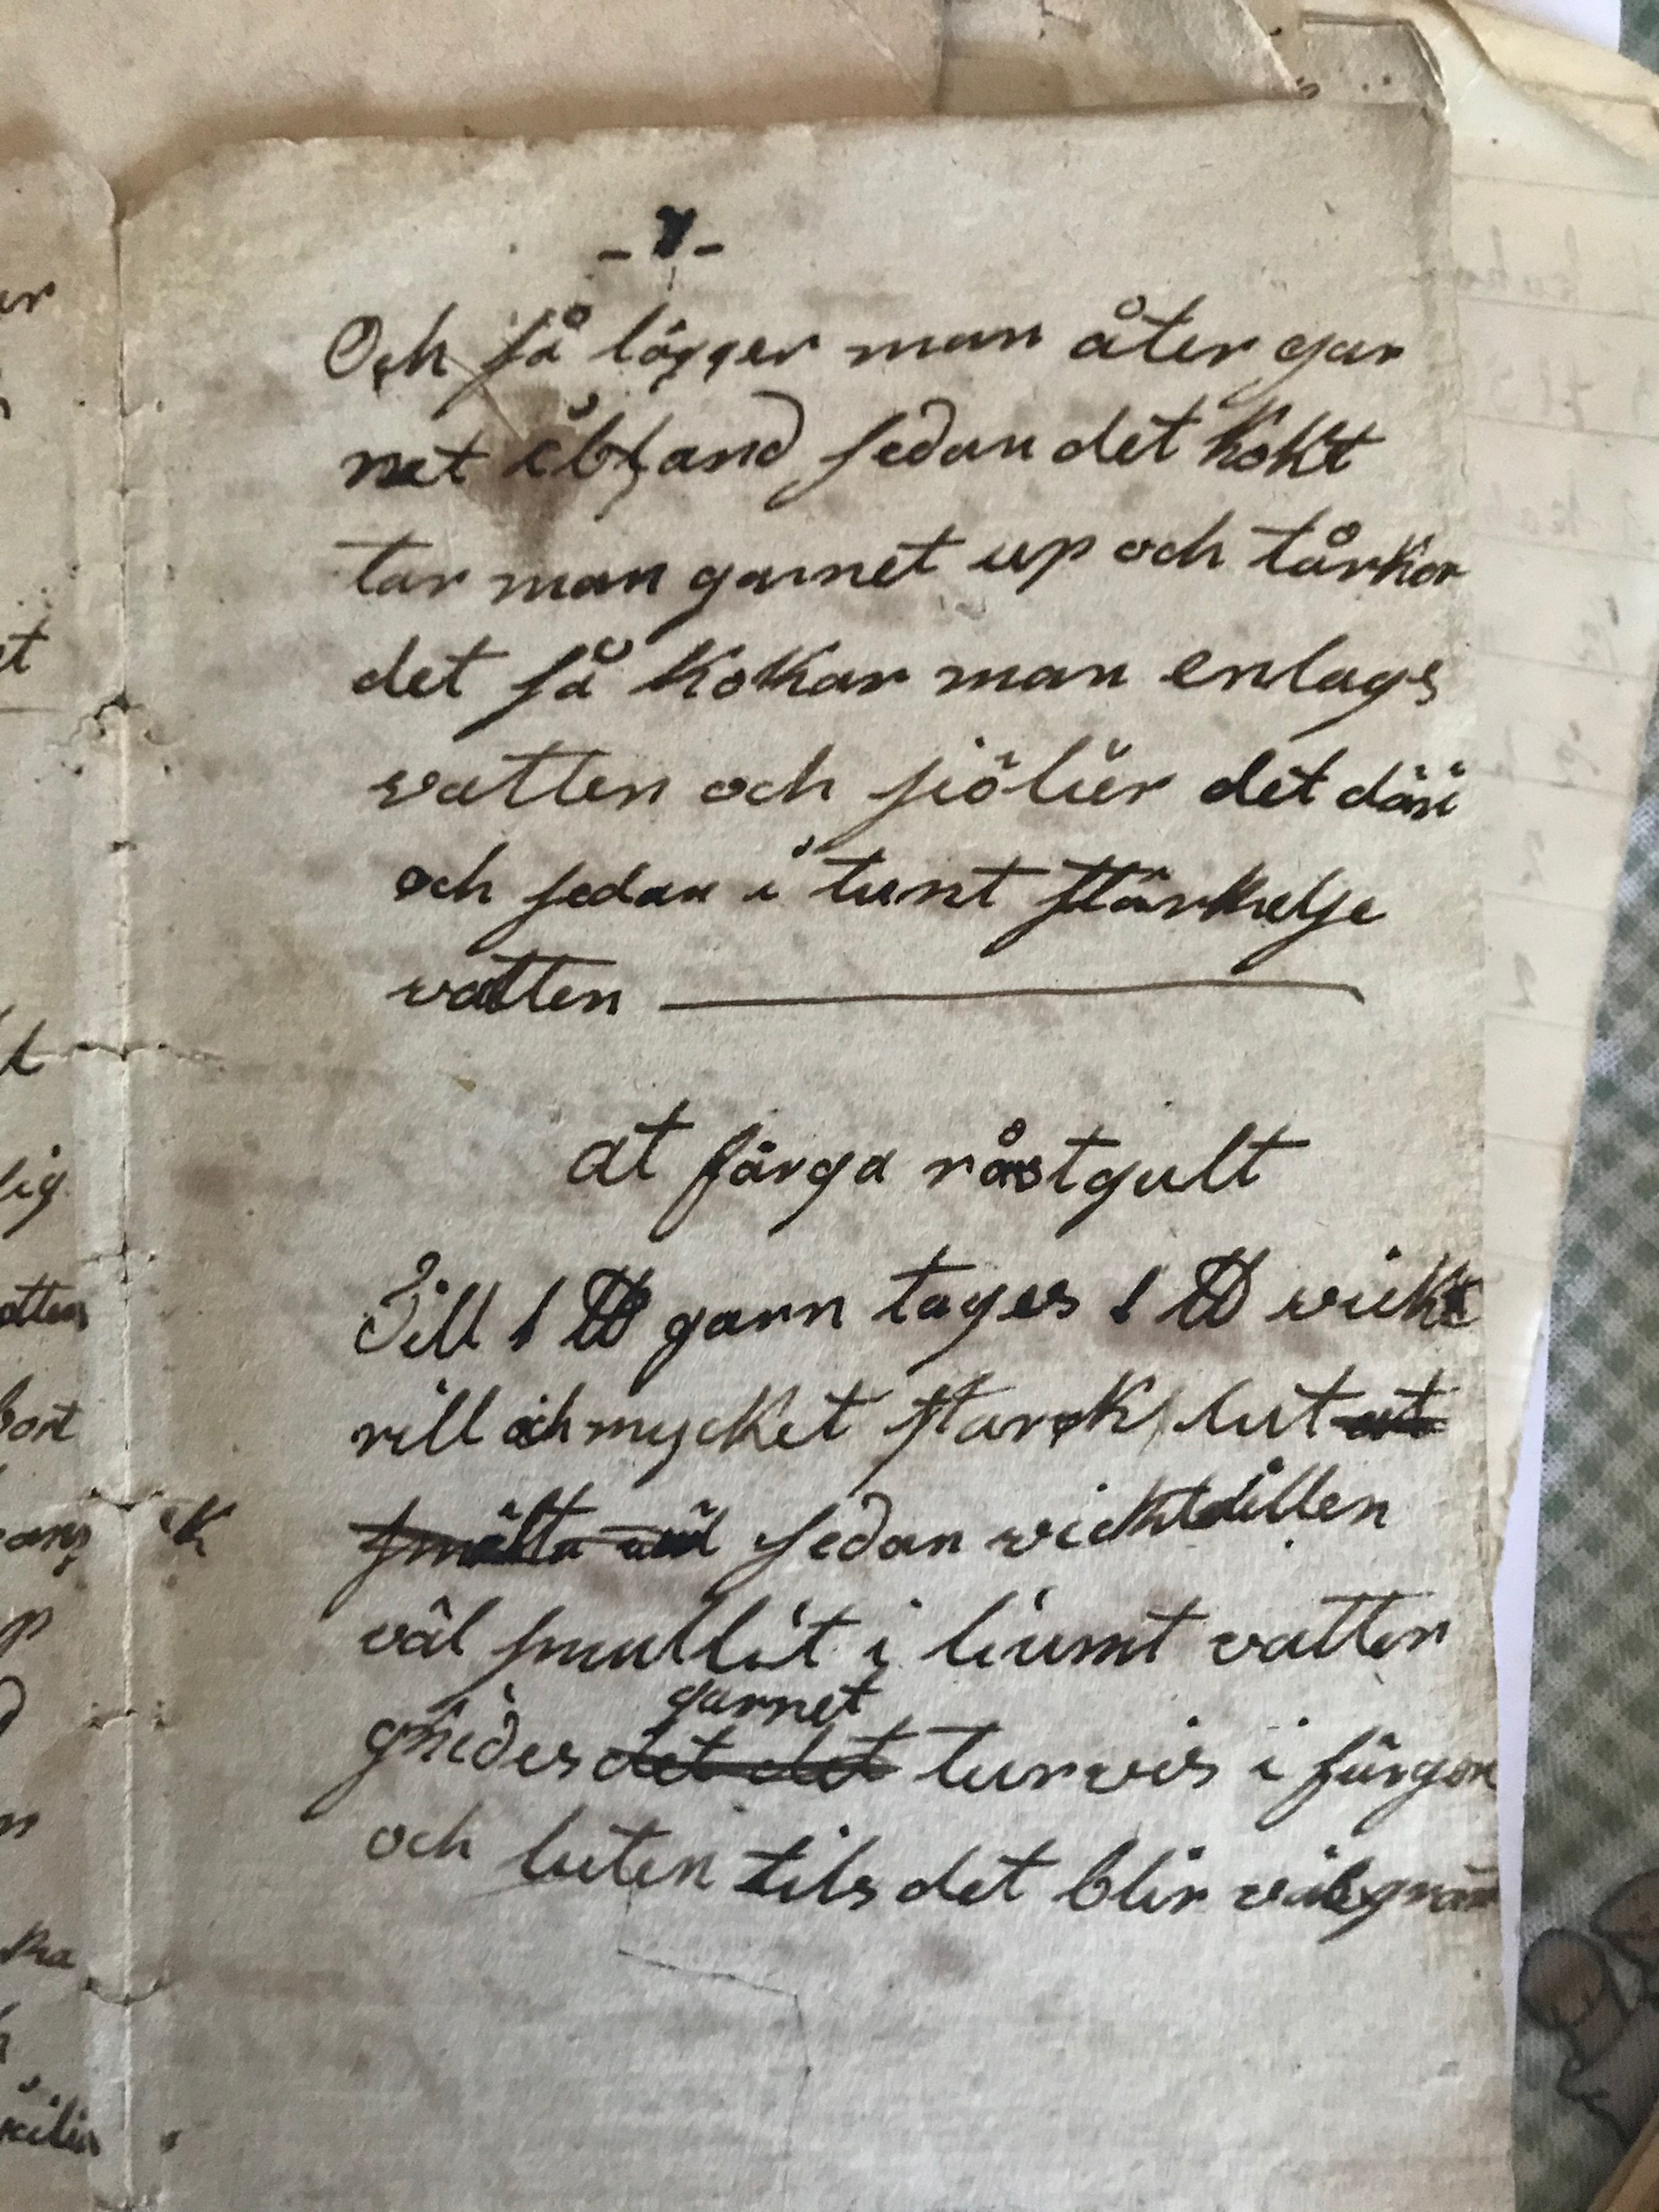 - 7 -
Och så lägger man åter gar
net ibland sedan det kokt
tar man garnet up och tårkar
det så kokar man enlags
vatten och siöler det däri
och sedan i tunt stärkelse
vatten
at färga råstgult
Till 1 ℔ garn tages 1 ℔ vickt
rill och mycket stark lut at
smälta väl sedan vicktdillen
väl smullit i liumt vatten
garnet
gnides det det turvis i färgen
och luten tils det blir